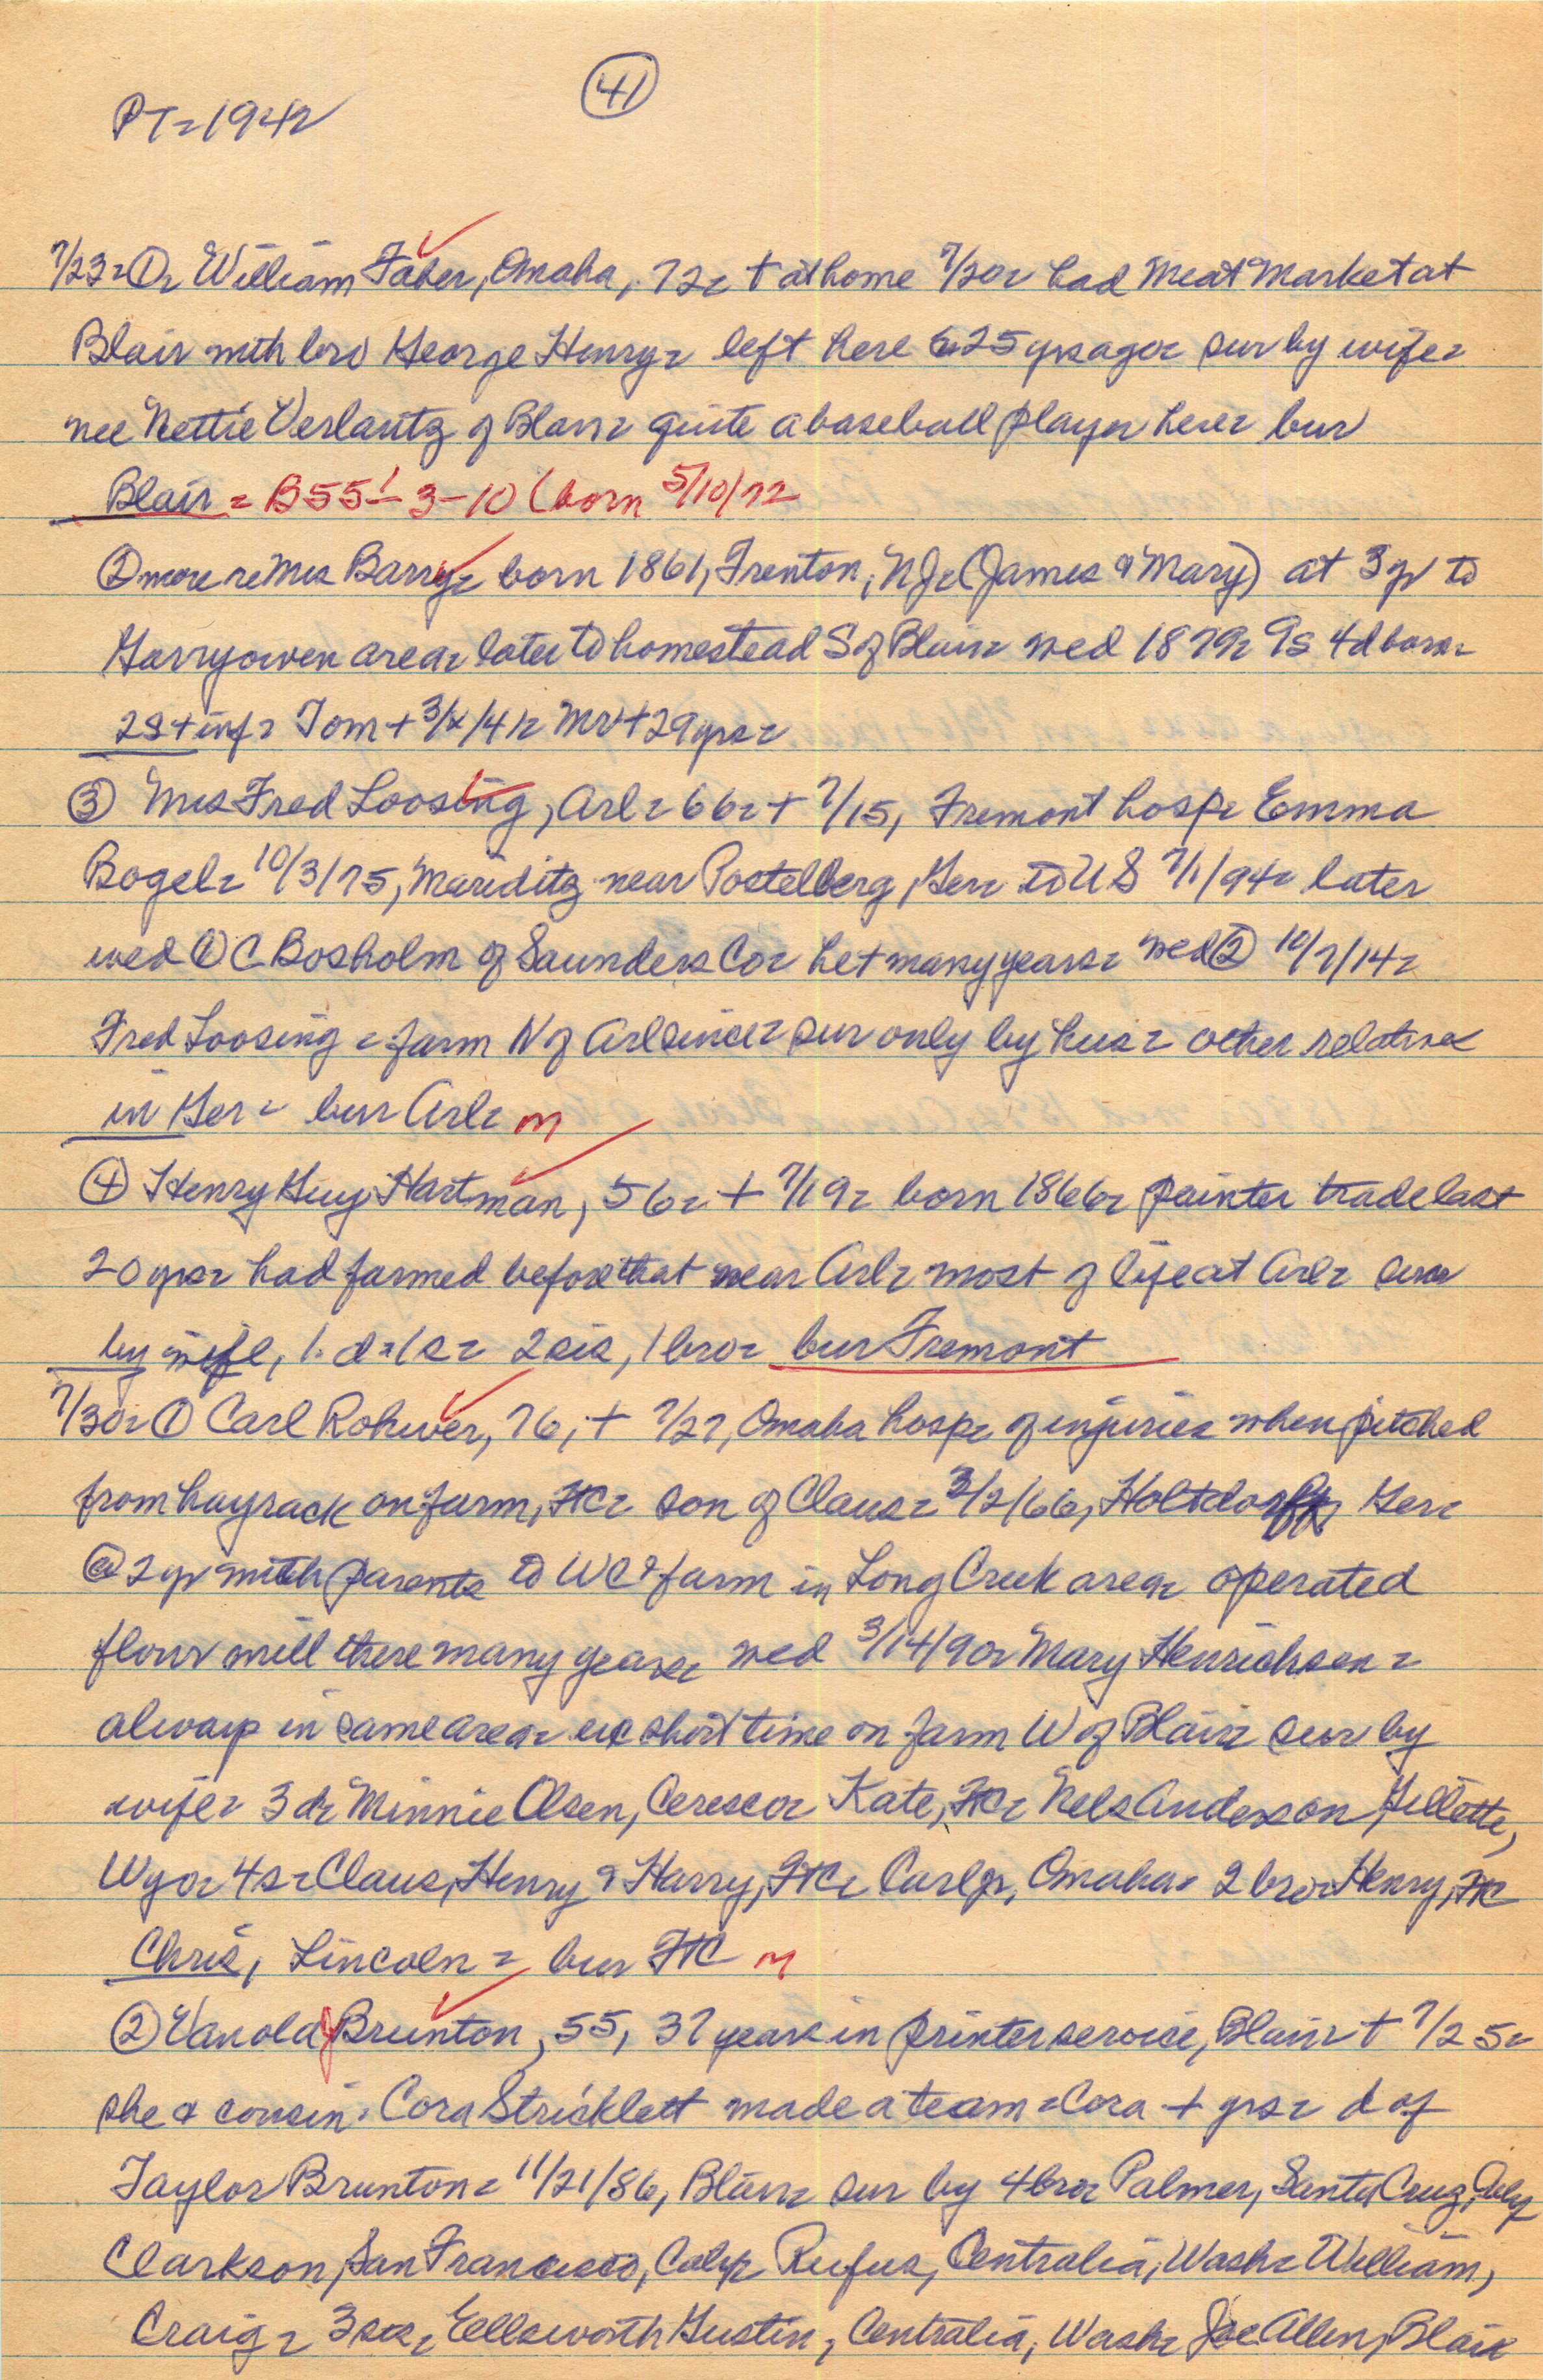 41
PT=1942
7/23=① William Faber, Omaha, 72= + at home 7/20= had meat market at
Blair with bro George Henry= left here 25 yrs ago= sur by wife=
nee Nettie Verlantz of Blair= quite a baseball player here= bur
Blair = B55-1-3-10 (born 5/10/72
② more re Mrs Barry= born 1861, Trenton, NJ= (James & Mary) at 3 yr to
Garryowen area= later to homestead S of Blair= wed 1879= 9s 4d born=
2s + inf= Tom + 3/x/41= Mr + 29 yrs=
③ Mrs Fred Loosing, Arl= 66= + 7/15, Fremont hosp= Emma
Bogel= 10/3/75, Mariditz near Postelberg, Ger= to US 7/1/94= later
wed ① C Bosholm of Saunders Co= he + many years= wed ② 10/7/14=
Fred Loosing = farm N of Arl since= sur only by hus= other relatives
in Ger= bur Arl= m
④ Henry Guy Hartman, 56= + 7/19= born 1866= painter trade last
20 yrs= had farmed before that near Arl= most of life at Arl= sur
by wife, 1 d=1s= 2 sis, 1 bro= bur Fremont
7/30= ① Carl Rohwer, 76, + 7/27, Omaha hosp= of injuries when pitched
from hayrack on farm, FtC= son of Claus= 3/2/66, Holtdorf, Ger=
@ 2 yr with parents to WC & farm in Long Creek area= operated
flour mill there many years= wed 3/14/90= Mary Henrichsen=
always in same area= exc short time on farm W of Blair= sur by
wife= 3 d= Minnie Olsen, Ceresco= Kate, FtC= Nels Anderson, Gillette,
Wyo= 4s=Claus, Henry & Harry, FtC= Carl jr, Omaha= 2 bro= Henry, FtC
Chris, Lincoln= bur FtC m
② Vanold Brunton, 55, 37 years in printer service, Blair= + 7/25=
she & cousin Cora Stricklett made a team=Cora + yrs= d of
Taylor Brunton= 11/21/86, Blair= sur by 4 bro= Palmer, Santa Cruz, Calif
Clarkson, San Francisco, Calif= Rufus, Centralia, Wash= William,
Craig= 3 sis= Ellsworth Gustin, Centralia, Wash= Joe Allen, Blair